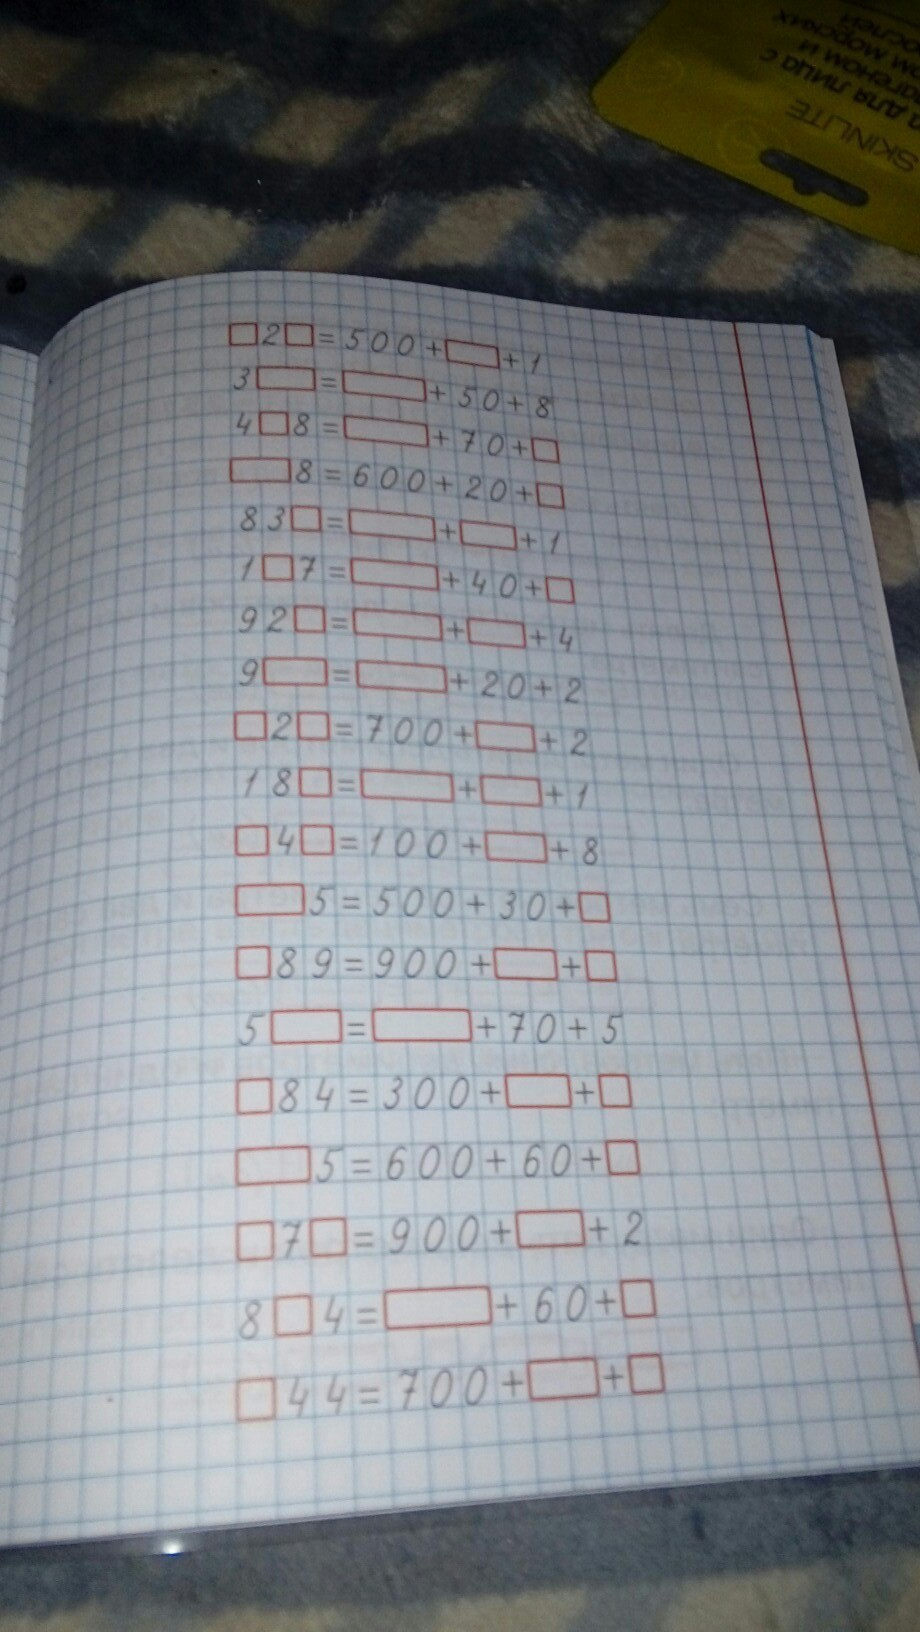 SKINLITE
для лица с
морских
□2□=500+□+1
3□=□+50+8
4□8=□+70+□
□8=600+20+□
83□=□+□+1
1□7=□+40+□
92□=□+□+4
9□=□+20+2
□2□=700+□+2
18□=□+□+1
□4□=100+□+8
□5=500+30+□
□89=900+□+□
5□=□+70+5
□84=300+□+□
□5=600+60+□
□7□=900+□+2
8□4=□+60+□
□44=700+□+□